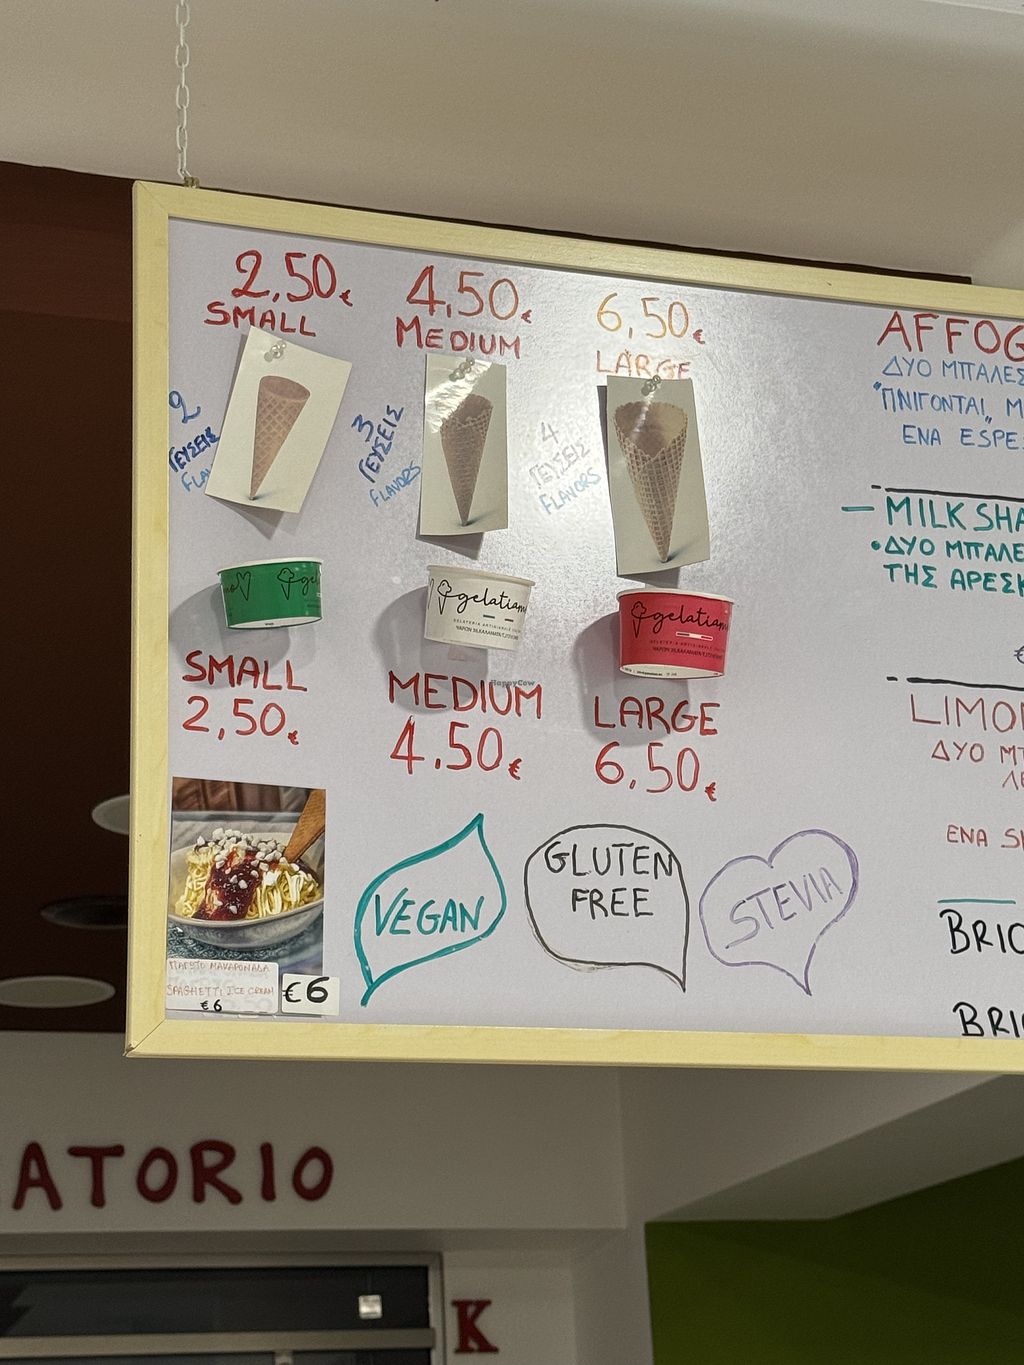 2,50€
SMALL
2
ΓΕΥΣΕΙΣ
FLA
4,50€
MEDIUM
3
ΓΕΥΣΕΙΣ
FLAVORS
6,50€
LARGE
4
ΓΕΥΣΕΙΣ
FLAVORS
gelatiam
gelatiam
SMALL
2,50€
MEDIUM
4.50€
LARGE
6,50€
HappyCow
ΠΑΓΩΤΟ ΜΑΚΑΡΟΝΑΔΑ
SPAGHETTI ICE CREAM
€6
€6
VEGAN
GLUTEN
FREE
STEVIA
AFFOG
ΔΥΟ ΜΠΑΛΕΣ
"ΠΝΙΓΟΝΤΑΙ" Μ
ΕΝΑ ESPE
— MILKSHA
•ΔΥΟ ΜΠΑΛΕ
ΤΗΣ ΑΡΕΣΚ
€
LIMO
ΔΥΟ ΜΠ
ΛΕ
ΕΝΑ
BRIO
BRI
ATORIO
K